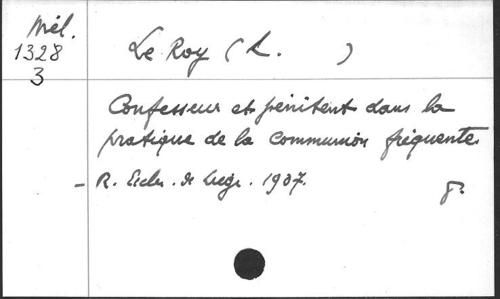 Mél.
1328
3
Le Roy (L. )
Confesseur et pénitent dans la
pratique de la communion fréquente
- R. Eccles. de Liège. 1907.
8°